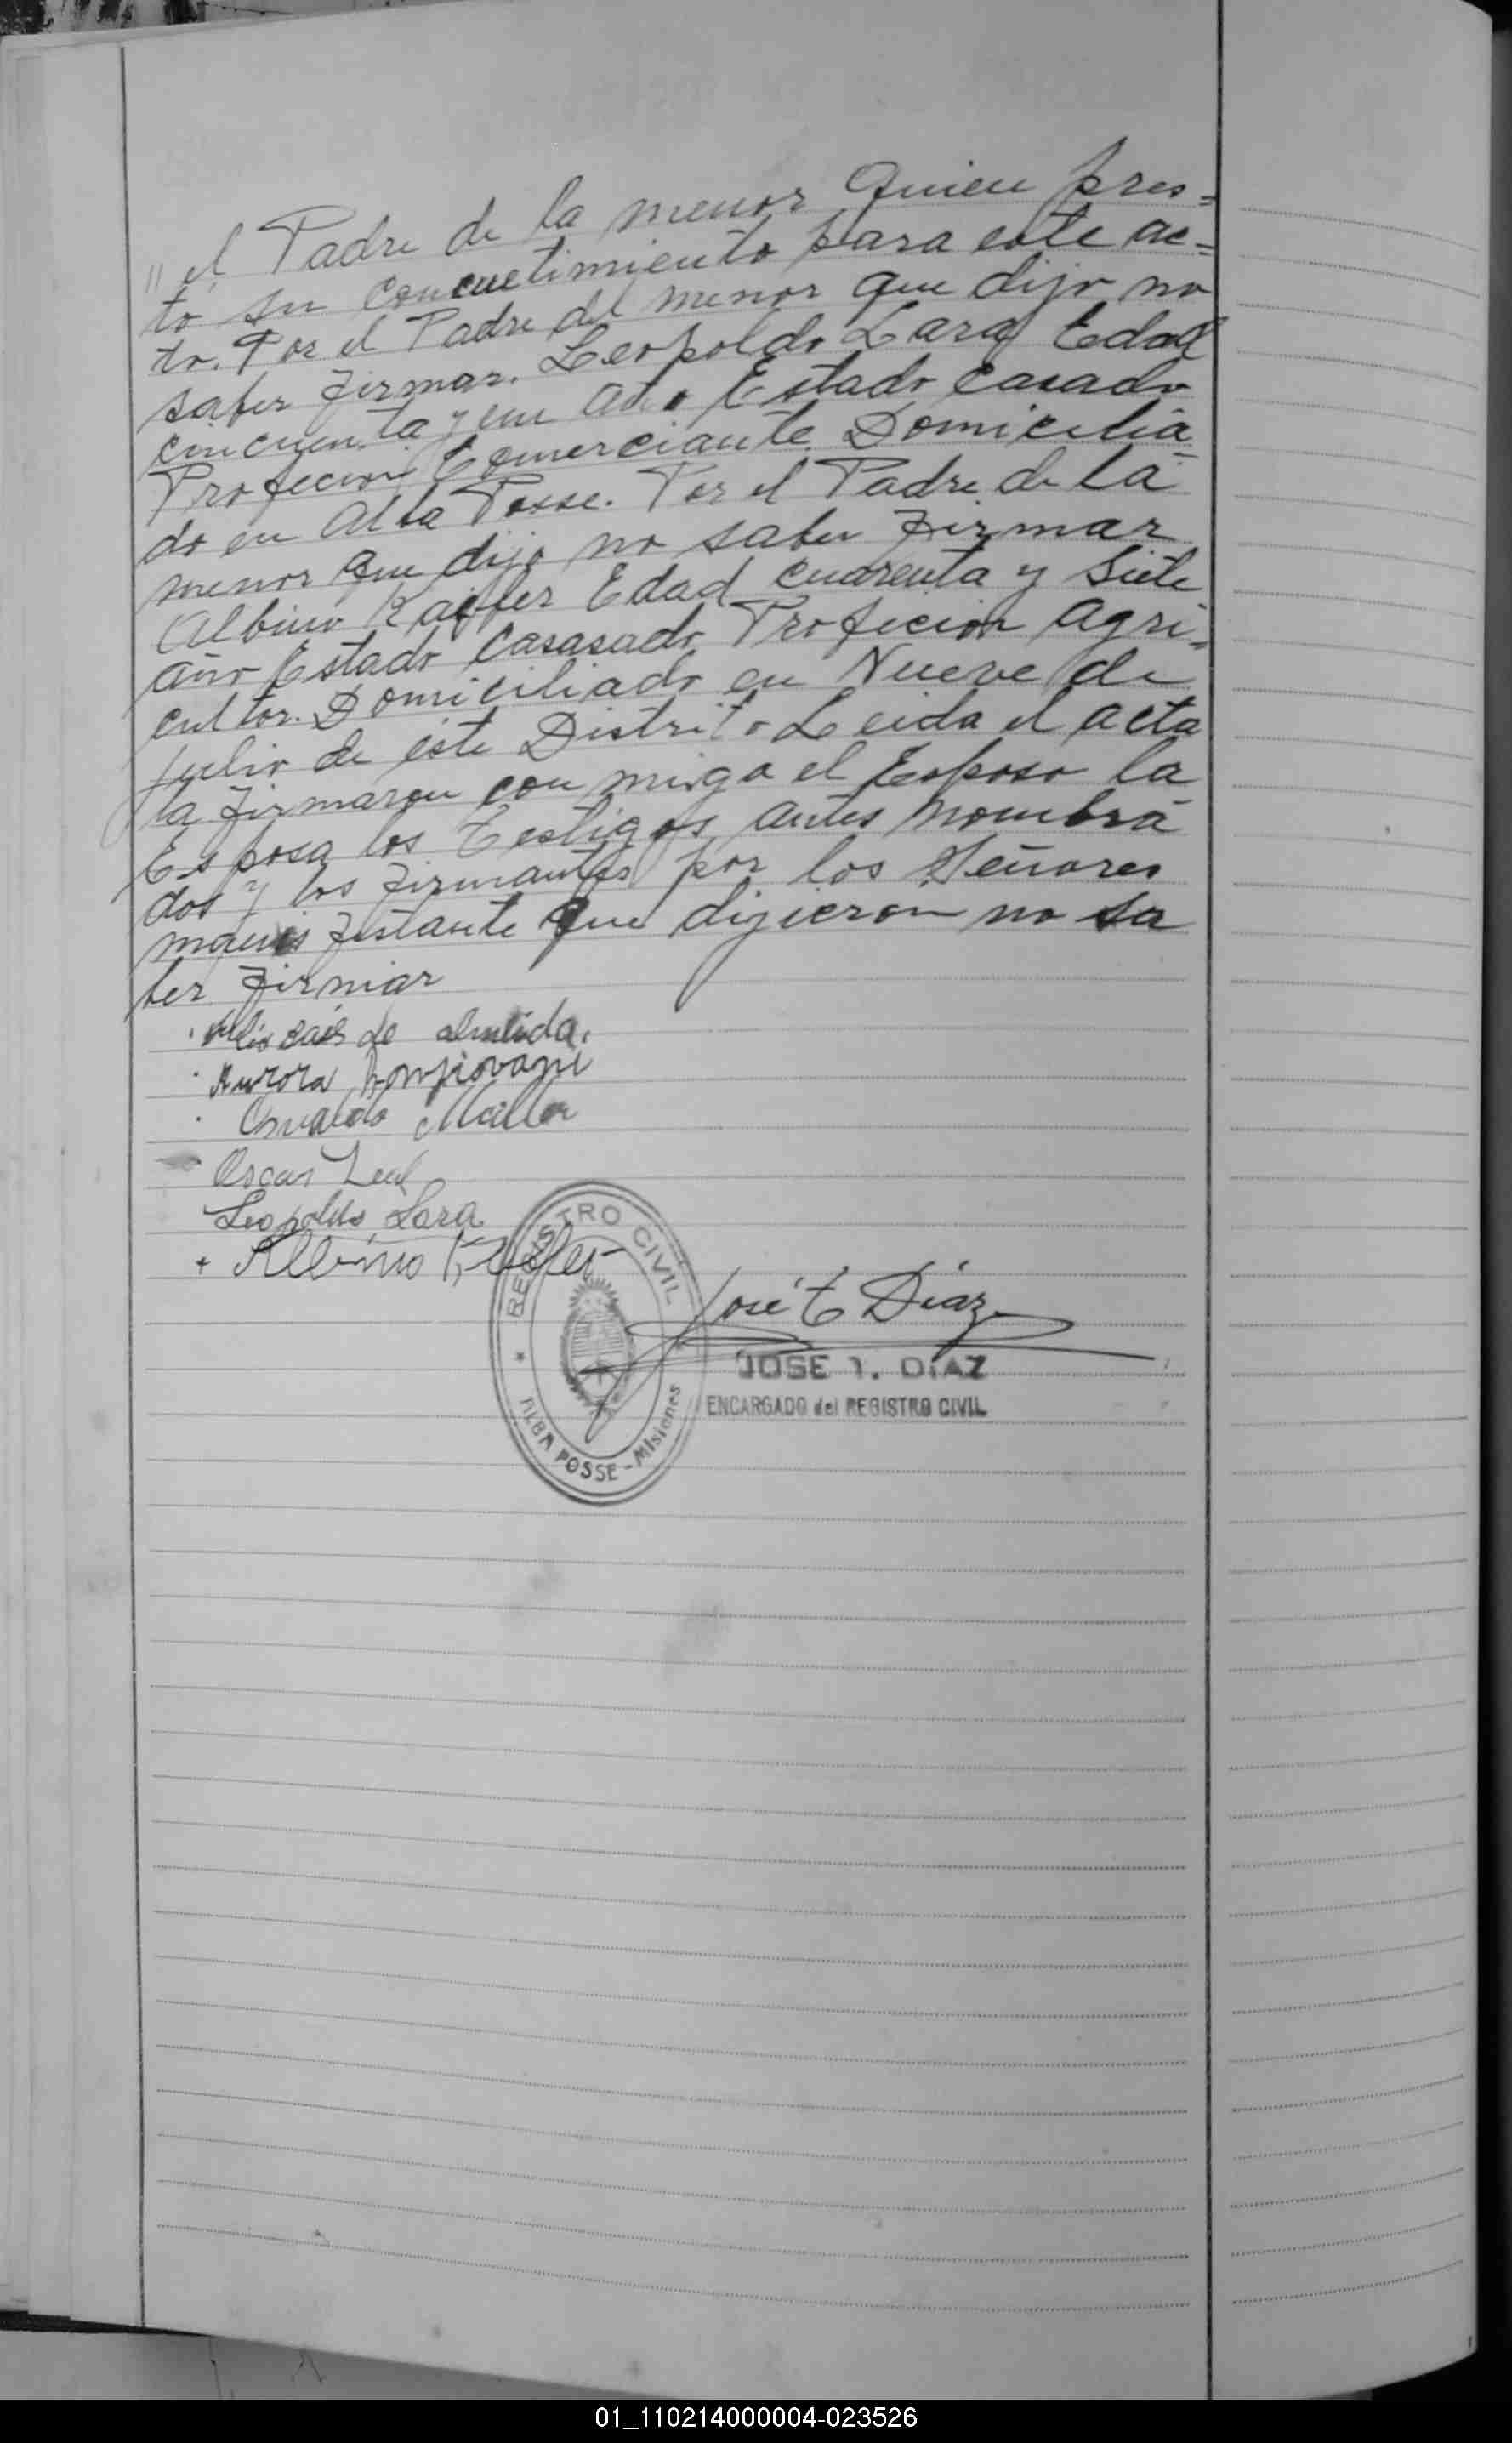 " el Padre de la menor Quien pres=
to su Concuetimiento para este ac=
to. Por el Padre del menor que dijo no
saber firmar. Leopoldo Lara Edad
cincuenta y un año Estado Casado
Profecion Comerciante Domicilia
do en Alba Posse. Por el Padre de la
menor que dijo no saber firmar
Albino Edad cuarenta y siete
año Estado Casasado Profecion agri=
cultor. Domiciliado en Nueve de
julio de este Distrito Leida el acta
la firmaron con migo el Esposo la
Esposa los Testigos antes nombra
dos y los firmantes por los Señores
manifistante que dijieron no sa
ber firmar
de almeida.
Aurora
Osvaldo
Oscar Leal
Leopoldo Lara
+ Albino
REGISTRO CIVIL
José E Diaz
JOSE 1. DIAZ
ENCARGADO del REGISTRO CIVIL
ALBA POSSE - Misiones
01_110214000004-023526